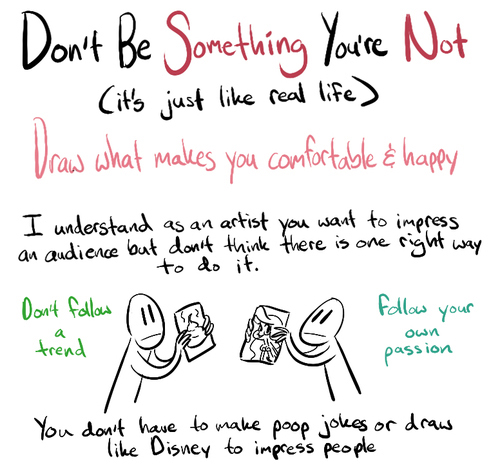 Don't Be Something You're Not
(it's just like real life)
Draw what makes you comfortable & happy
I understand as an artist you want to impress
an audience but don't think there is one right way
to do it.
Don't follow
a
trend
Follow your
own
passion
You don't have to make poop jokes or draw
like Disney to impress people